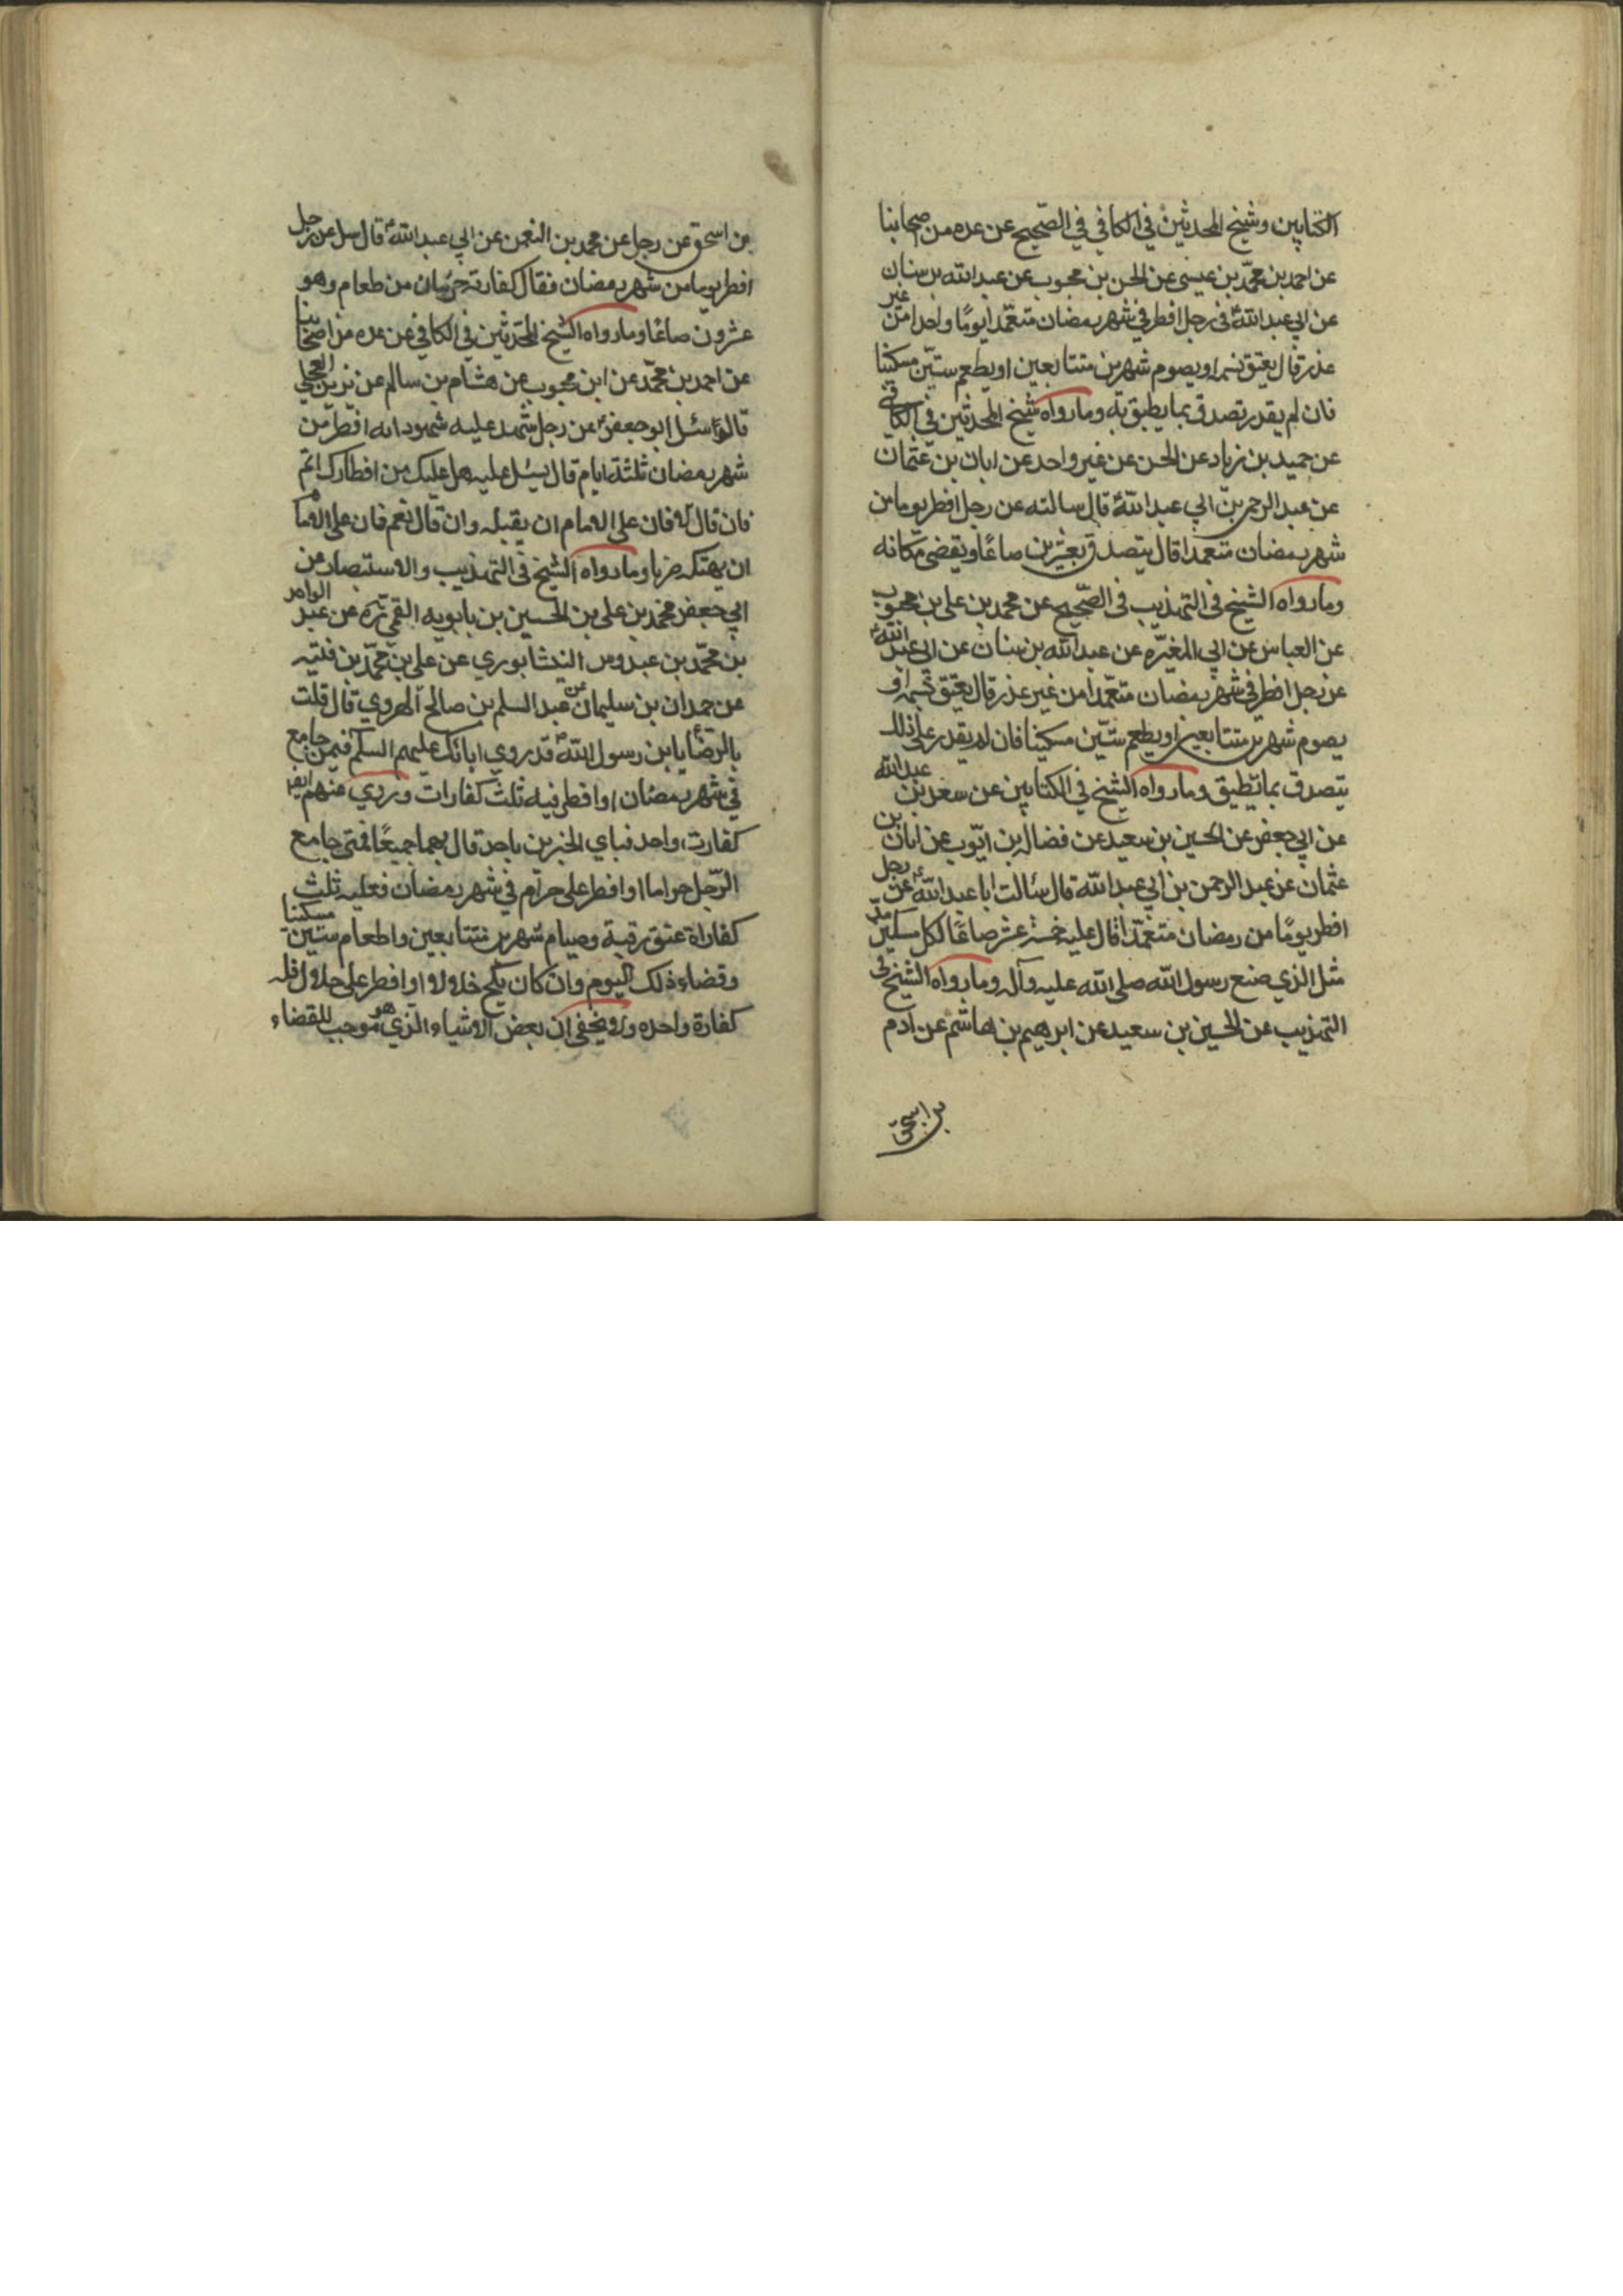 الكتابين وشيخ المحدثين في الكافي في الصّحيح عن عده من اصحابنا
عن احمد بن محمّد بن عيسى عن الحسن بن محبوب عن عبد الله بن سنان
عن ابي عبد اللهؑ في رجل افطر في شهر رمضان متعمّدا يومًا واحدا من غير
عذر قال يعتق نسمه او يصوم شهرين متتابعين او يطعم ستّين مسكينا
فان لم يقدر تصدق بما يطيق به وما رواه شيخ المحدثين في الكافي
عن حميد بن زياد عن الحسن عن غير واحد عن ابان بن عثمان
عن عبد الرحمن بن ابي عبد اللهؑ قال سالته عن رجل افطر يوما من
شهر رمضان متعمدا قال يتصدق بعشرين صاعًا ويقضي مكانه
وما رواه الشيخ في التهذيب في الصّحيح عن محمد بن علي بن محبوب
عن العباس عن ابي المغيّره عن عبد الله بن سنان عن ابي عبد اللهؑ
عن رجل افطر في شهر رمضان متعّمدا من غير عذر قال يعتق نسمه او
يصوم شهرين متتابعين او يطعم ستّين مسكينا فان لم يقدر على ذلك
يتصدق بما يطيق وما رواه الشيخ في الكتابين عن سعد بن عبد الله
عن ابي جعفر عن الحسين بن سعيد عن فضاله بن ايّوب عن ابان بن
عثمان عن عبد الرحمن بن ابي عبد الله قال سئالت ابا عبد اللهؑ عن رجل
افطر يومًا من رمضان متعّمدا قال عليه خمسة عشر صاعًا لكل مسكين مدّ
مثل الذي صنع رسول الله صلى الله عليه وآله وما رواه الشيخ في
التهذيب عن الحسين بن سعيد عن ابرهيم بن هاشم عن ادم
بن اسحق
بن اسحق عن رجل عن محمد بن النعمن عن ابي عبد اللهؑ قال سئل عن رجل
افطر يوما من شهر رمضان فقال كفارته جريبان من طعام وهو
عشرون صاعًا وما رواه الشيخ المحدثين في الكافي عن عده من اصحابنا
عن احمد بن محمّد عن ابن محبوب عن هشام بن سالم عن بريد العجلي
قال سئل ابو جعفرؑ عن رجل شهد عليه شهود انه افطر من
شهر رمضان ثلثة ايام قال يسئل عليه هل عليك من افطارك اثم
فان قال لا فان على الامام ان يقتله وان قال نعم فان على الامام
ان يهتكه ضربا وما رواه الشيخ في التهذيب والاستبصار عن
ابي جعفر محمد بن علي بن الحسين بن بابويه القمي ره عن عبد الواحد
بن محمّد بن عبدوس النيشابوري عن علي بن محمّد بن قتيبه
عن حمدان بن سليمان عن عبد السلم بن صالح الهروي قال قلت
بالرّضاؑ يا ابن رسول اللهؐ قد روي ابائك عليهم السلم فيمن جامع
في شهر رمضان او افطر فيه ثلث كفارات وروي عنهم ايضا
كفارت واحد فباي الخبرين ناخذ قال بهما جميعًا فمتى جامع
الرّجل حراما او افطر على حرام في شهر رمضان فعليه ثلث
كفاراة عتق رقبة وصيام شهرين متتابعين واطعام ستين مسكينا
وقضاء ذلك اليوم وان كان نكح حلالا او افطر على حلال فله
كفارة واحده ولا يخفى ان بعض الاشياء الذي هو موجب للقضاء